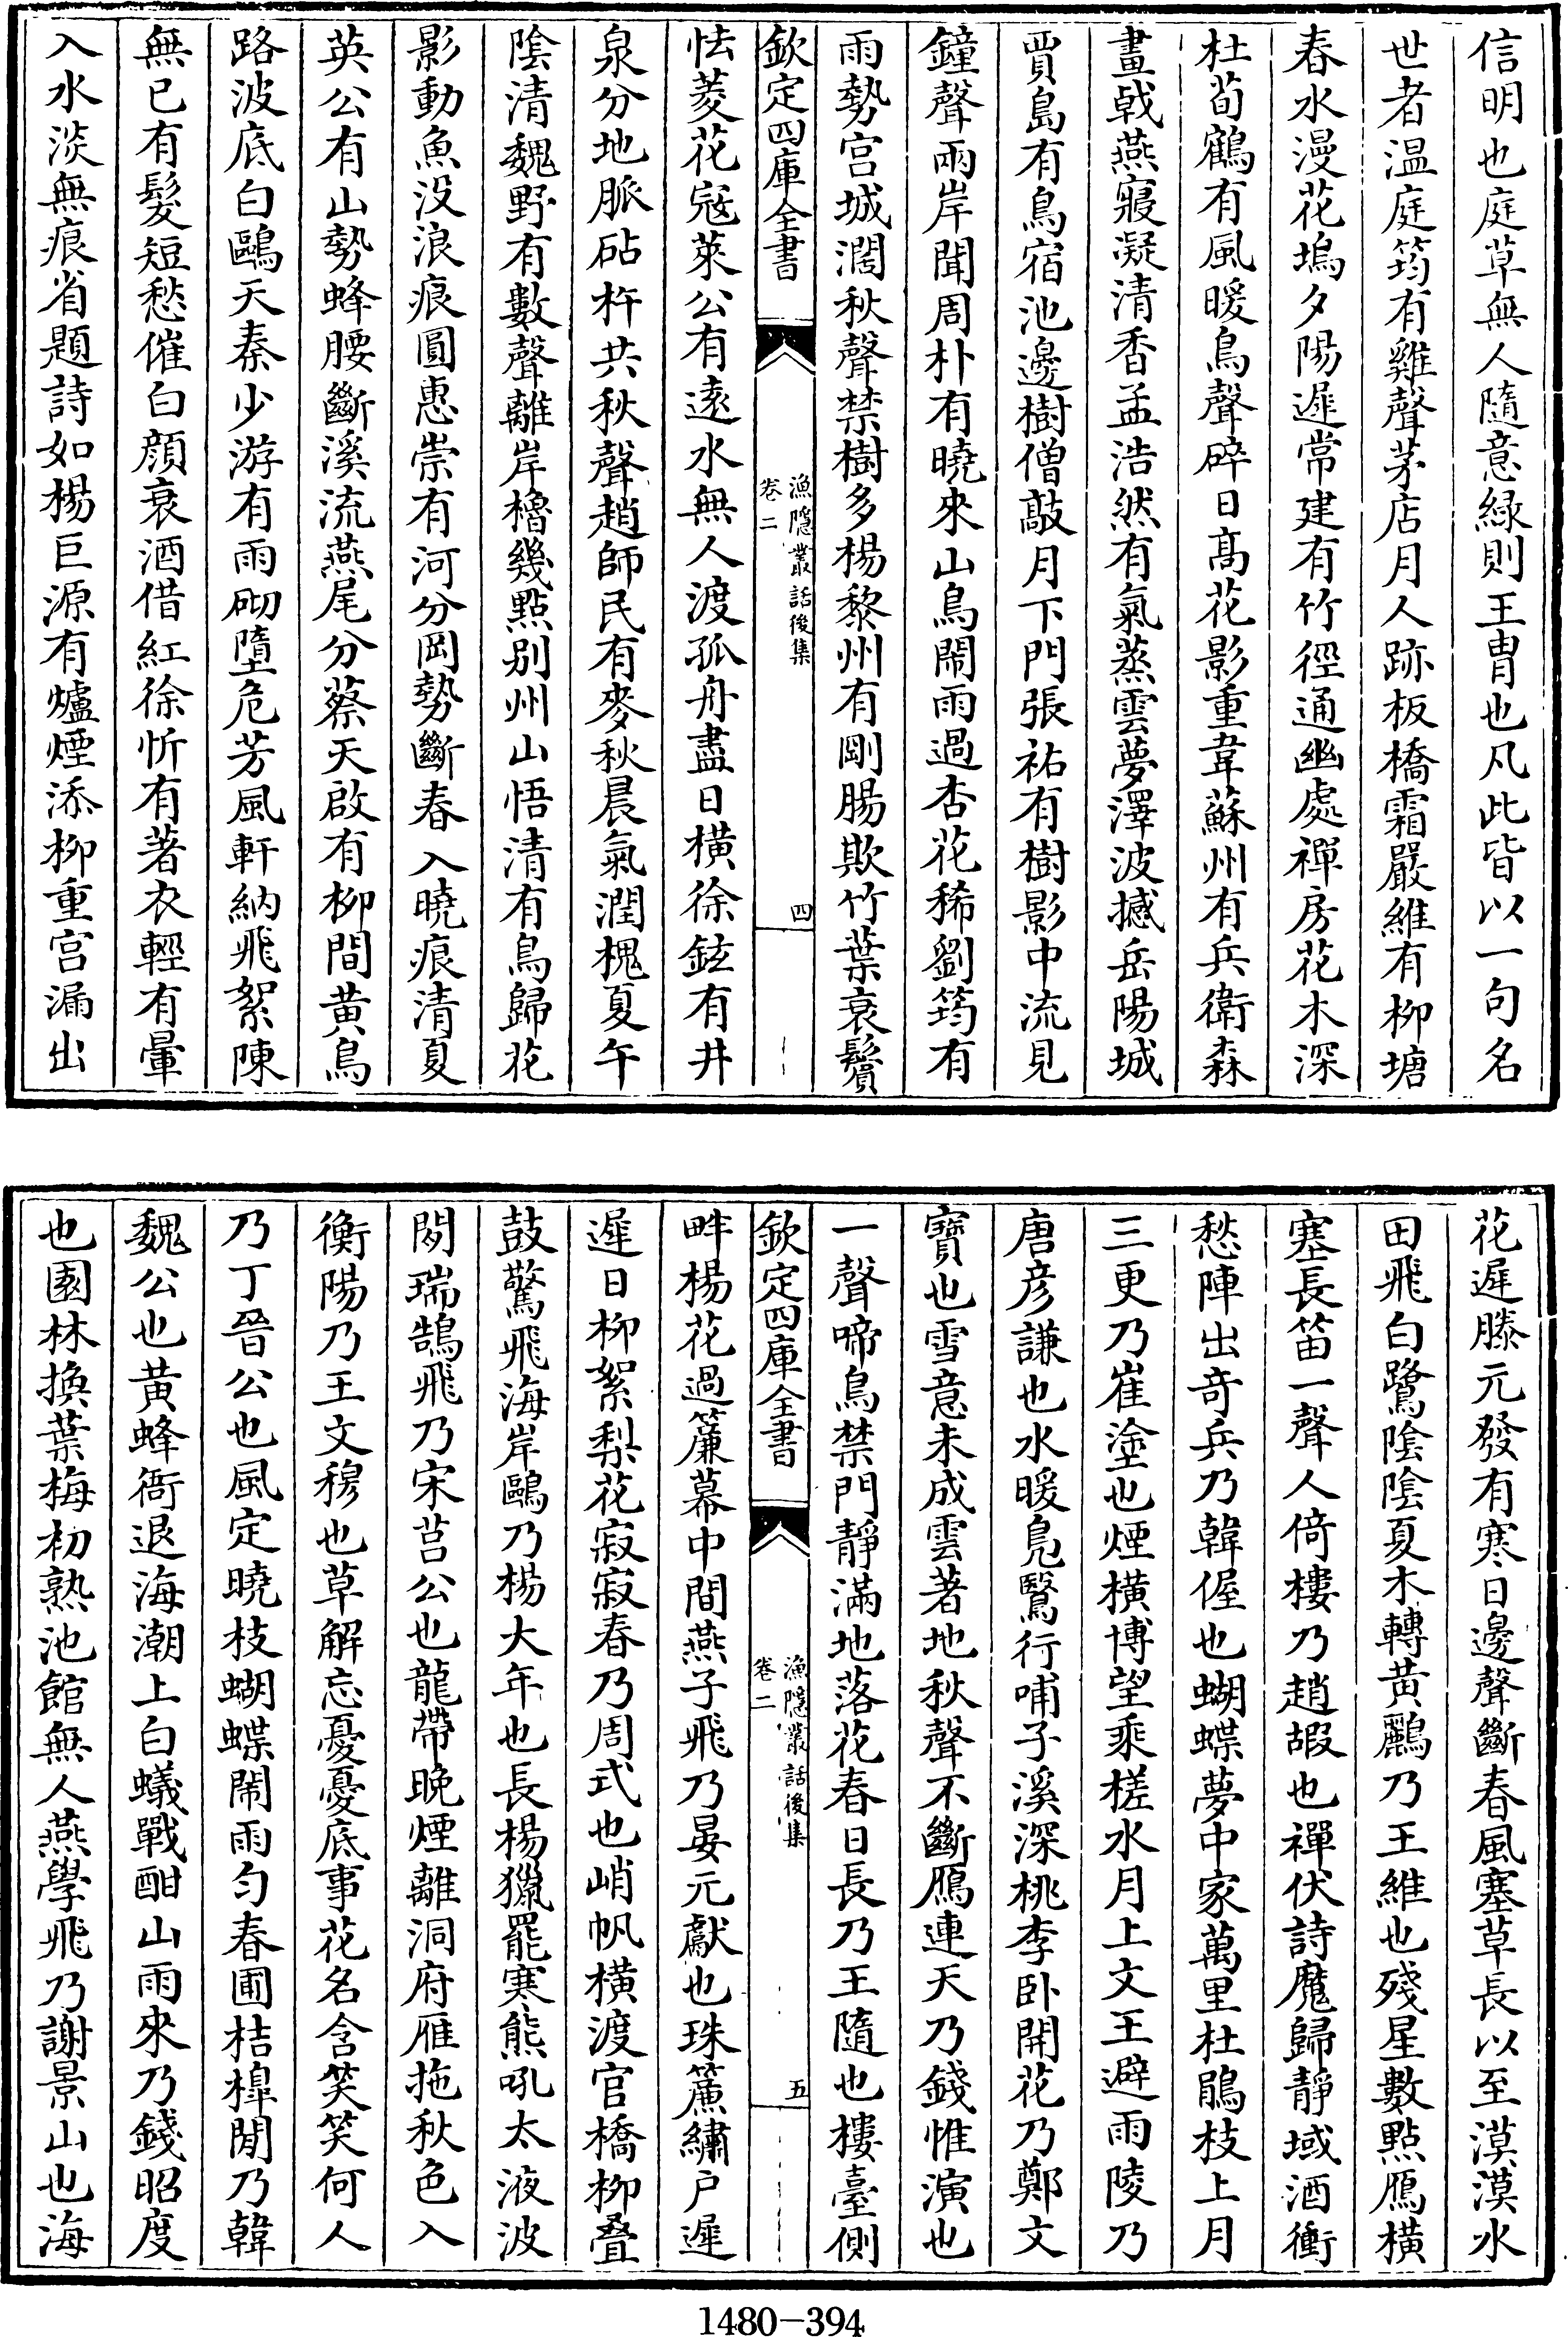 信明也庭草無人隨意緑則王胄也凡此皆以一句名
世者温庭筠有雞聲茅店月人跡板橋霜嚴維有柳塘
春水漫花塢夕陽遲常建有竹徑通幽處禪房花木深
杜荀鶴有風暖鳥聲碎日髙花影重韋蘇州有兵衛森
畫戟燕寢凝清香孟浩然有氣蒸雲夢澤波撼岳陽城
賈島有鳥宿池邊樹僧敲月下門張祐有樹影中流見
鐘聲兩岸聞周朴有曉來山鳥鬧雨過杏花稀劉筠有
雨勢宫城濶秋聲禁樹多楊黎州有剛腸欺竹葉衰鬢
欽定四庫全書
漁隱叢話後集
卷二
四
怯菱花寇萊公有逺水無人渡孤舟盡日横徐鉉有井
泉分地脈砧杵共秋聲趙師民有麥秋晨氣潤槐夏午
隂清魏野有數聲離岸櫓幾點别州山悟清有鳥歸花
影動魚没浪痕圓惠崇有河分岡勢斷春入曉痕清夏
英公有山勢蜂腰斷溪流燕尾分蔡天啟有柳間黄鳥
路波底白鷗天秦少游有雨砌墮危芳風軒納飛絮陳
無已有髮短愁催白顔衰酒借紅徐忻有著衣輕有暈
入水淡無痕省題詩如楊巨源有爐煙添柳重宫漏出
花遲滕元發有寒日邊聲斷春風塞草長以至漠漠水
田飛白鷺隂隂夏木轉黄鸝乃王維也殘星數點鴈横
塞長笛一聲人倚樓乃趙嘏也禪伏詩魔歸靜域酒衝
愁陣出竒兵乃韓偓也蝴蝶夢中家萬里杜鵑枝上月
三更乃崔塗也煙横博望乘槎水月上文王避雨陵乃
唐彦謙也水暖鳬鷖行哺子溪深桃李卧開花乃鄭文
寶也雪意未成雲著地秋聲不斷鴈連天乃錢惟演也
一聲啼鳥禁門靜滿地落花春日長乃王隨也樓臺側
欽定四庫全書
漁隱叢話後集
卷二
五
畔楊花過簾幕中間燕子飛乃晏元獻也珠簾繡户遲
遲日柳絮梨花寂寂春乃周式也峭帆横渡官橋柳疊
鼓驚飛海岸鷗乃楊大年也長楊獵罷寒熊吼太液波
閑瑞鵠飛乃宋莒公也龍帶晚煙離洞府雁拖秋色入
衡陽乃王文穆也草解忘憂憂底事花名含笑笑何人
乃丁晉公也風定曉枝蝴蝶鬧雨勻春圃桔橰閒乃韓
魏公也黄蜂衙退海潮上白蟻戰酣山雨來乃錢昭度
也園林換葉梅初熟池館無人燕學飛乃謝景山也海
1480-394